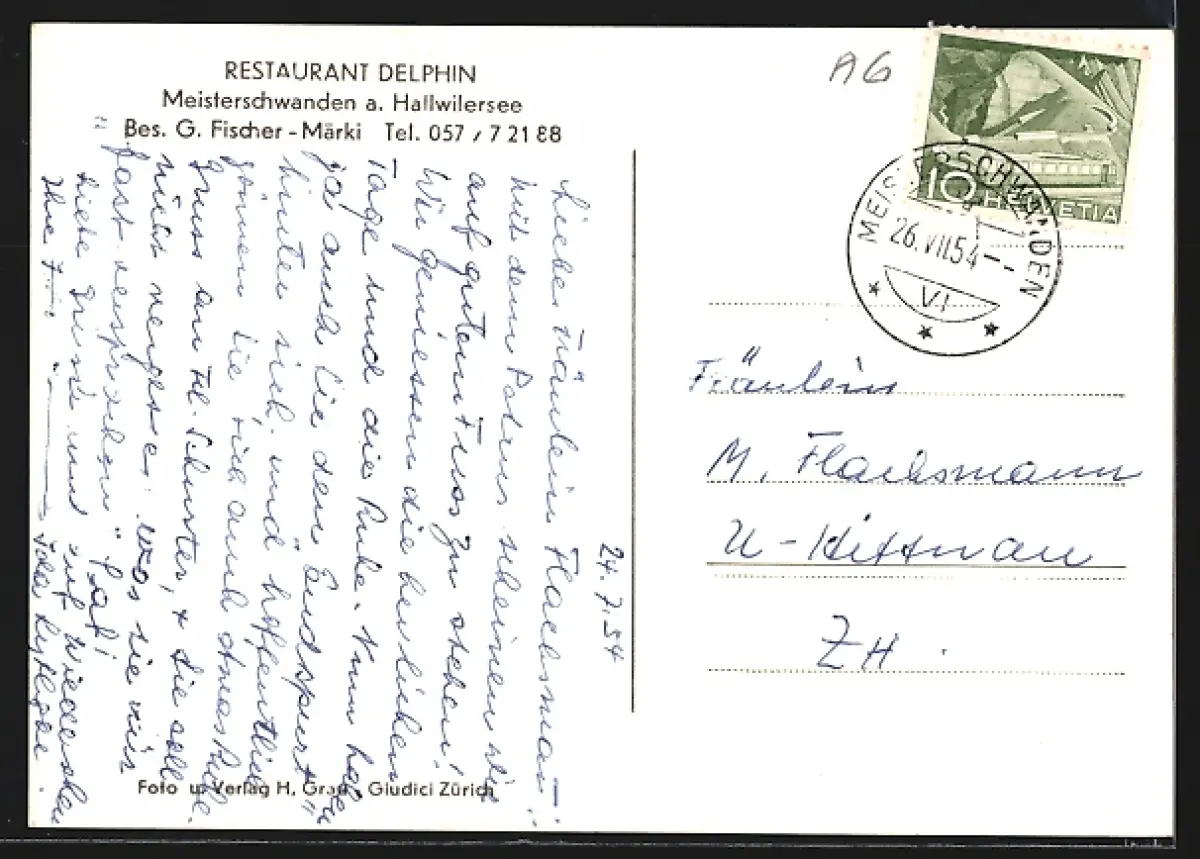 RESTAURANT DELPHIN
Meisterschwanden a. Hallwilersee
Bes. G. Fischer - Märki Tel. 057 / 7 21 88
AG
10 HELVETIA
MEISTERSCHWANDEN
26.VII.54
VI
24.7.54
Liebes Fräulein Flachsmann
Mit dem Petrus scheinen wir
auf gutem Fuss zu stehen!
Wir geniessen die herrlichen
Tage und die Ruhe. Nun haben
ja auch Sie den "Endspurt"
hinten sich und hoffentlich
gönnen Sie sich auch etwas Ruhe.
Gruss an Frl. Schuster, & sie soll
nicht vergessen was sie mir
"fast versprochen" hat!
Liebe Grüsse und auf Wiedersehen
Ihre
Fräulein
M. Flachsmann
U-Hittnau
ZH
Foto u. Verlag H. Graf - Giudici Zürich